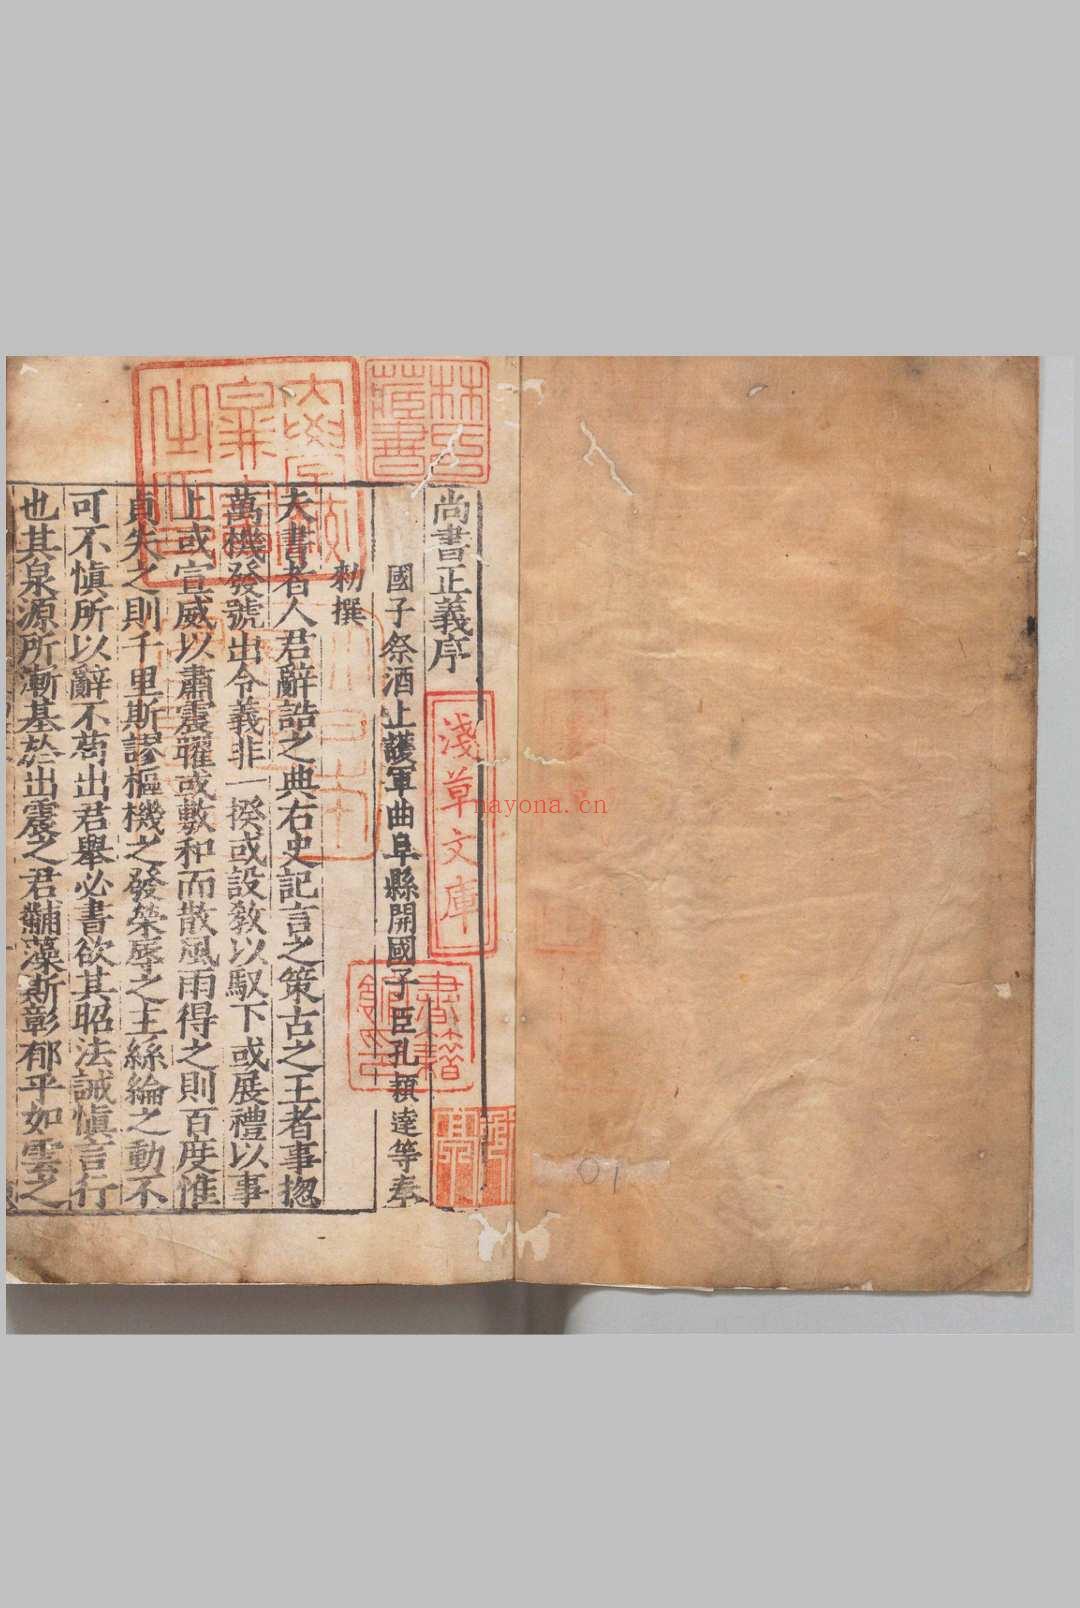 尚書正義序
國子祭酒上護軍曲阜縣開國子臣孔穎達等奉
勑撰
夫書者人君辭誥之典右史記言之策古之王者事揔
萬機發號出令義非一揆或設敎以馭下或展禮以事
上或宣威以肅震曜或敷和而散風雨得之則百度惟
貞失之則千里斯謬樞機之發榮辱之主絲綸之動不
可不愼所以辭不苟出君舉必書欲其昭法誡愼言行
也其泉源所漸基於出震之君黼藻斯彰郁乎如雲之
林氏
藏書
淺草文庫
書籍
館印
nayona.cn
01